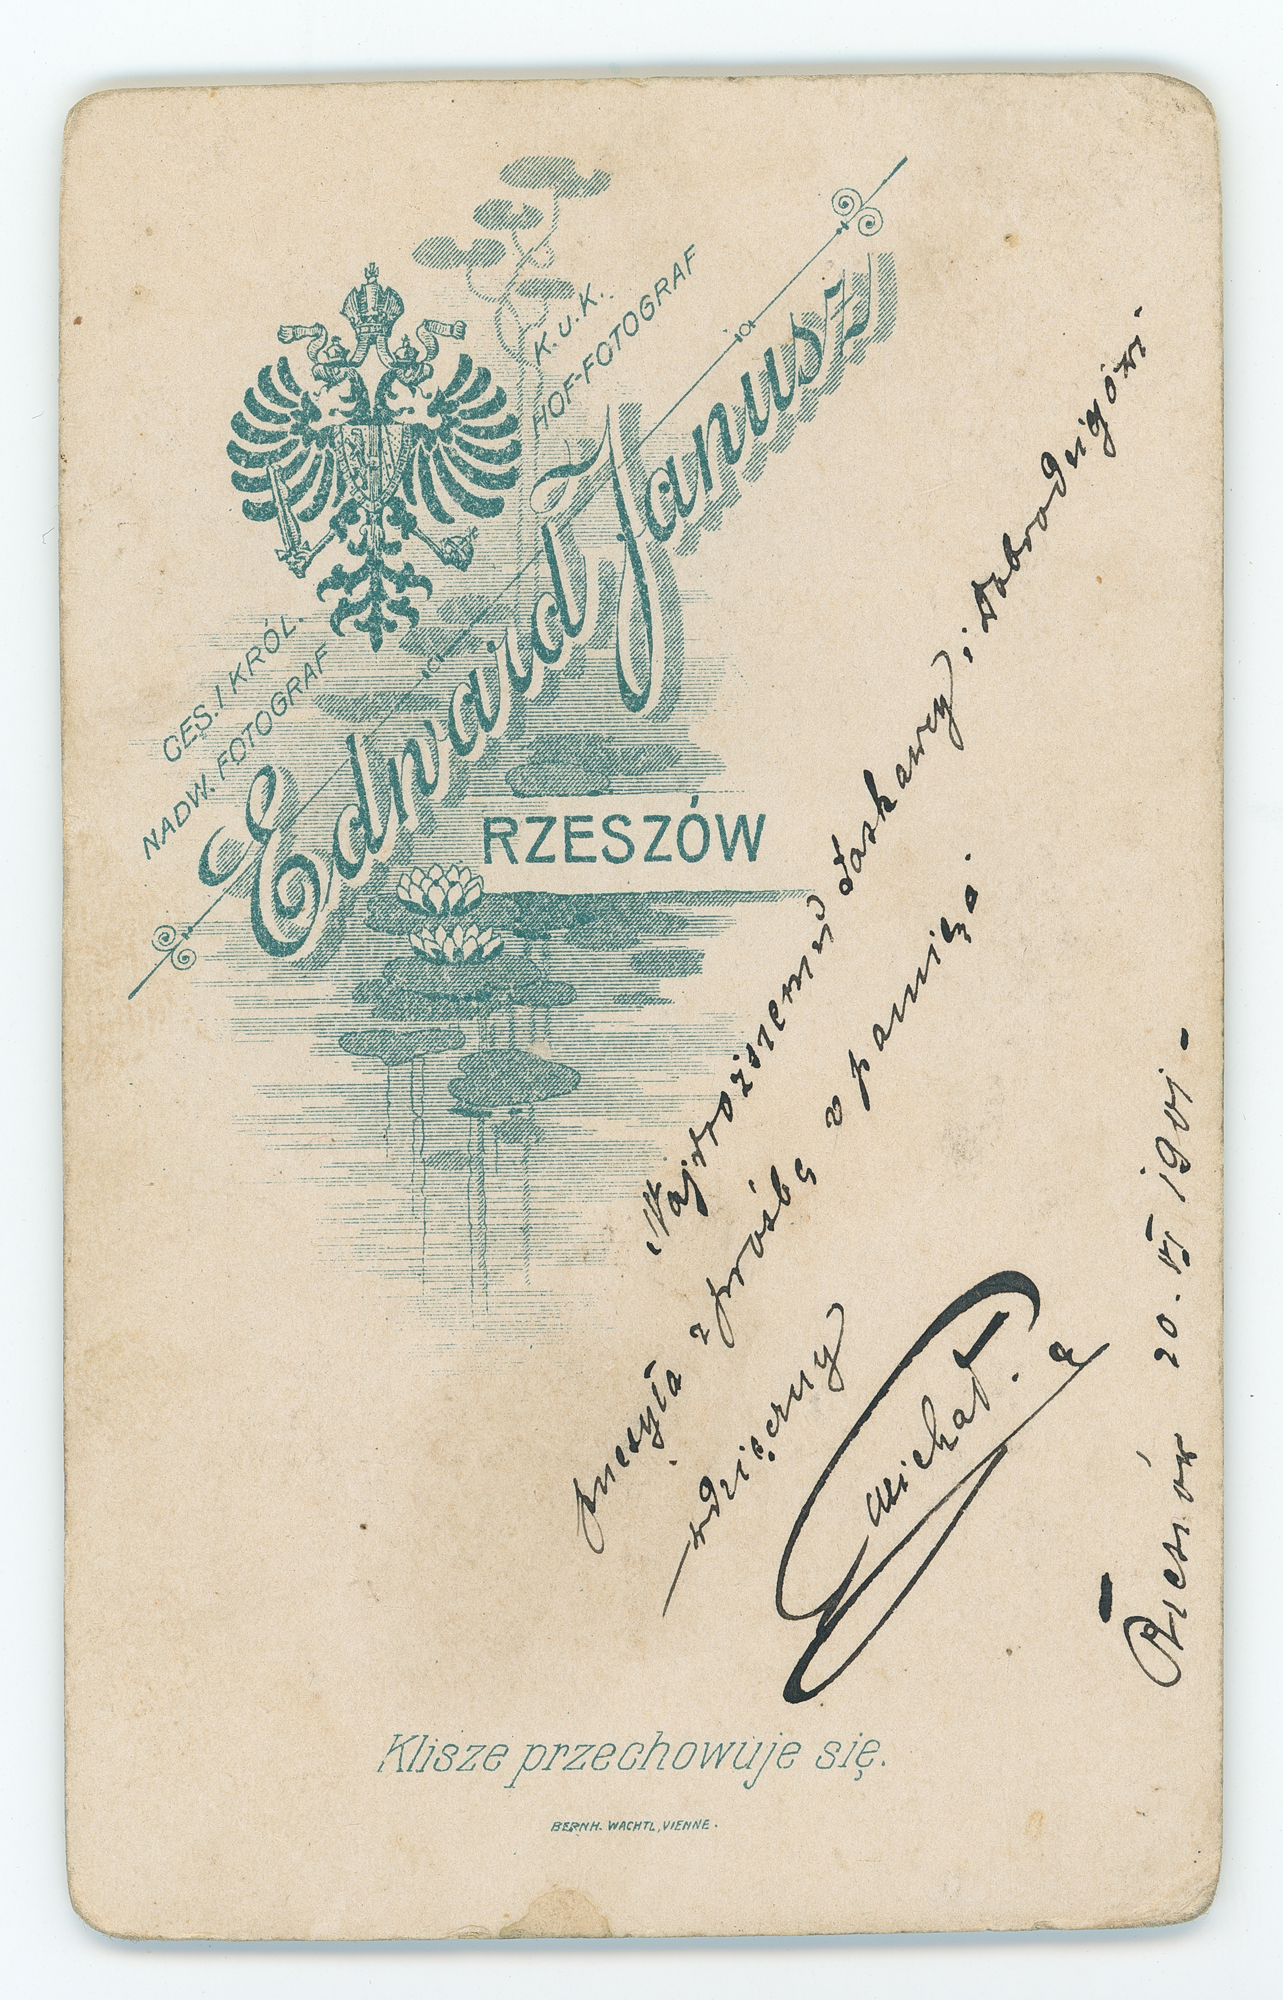 K. u. K.
HOF-FOTOGRAF
CES. I KRÓL.
NADW. FOTOGRAF
Edward Janusz
RZESZÓW
Najdroższemu Łaskawcy i Dobrodziejowi
przesyła z prośbą o pamięć
wdzięczny
Michał.
Rzeszów 20. VI 1901 -
Klisze przechowuje się.
BERNH. WACHTL, VIENNE.